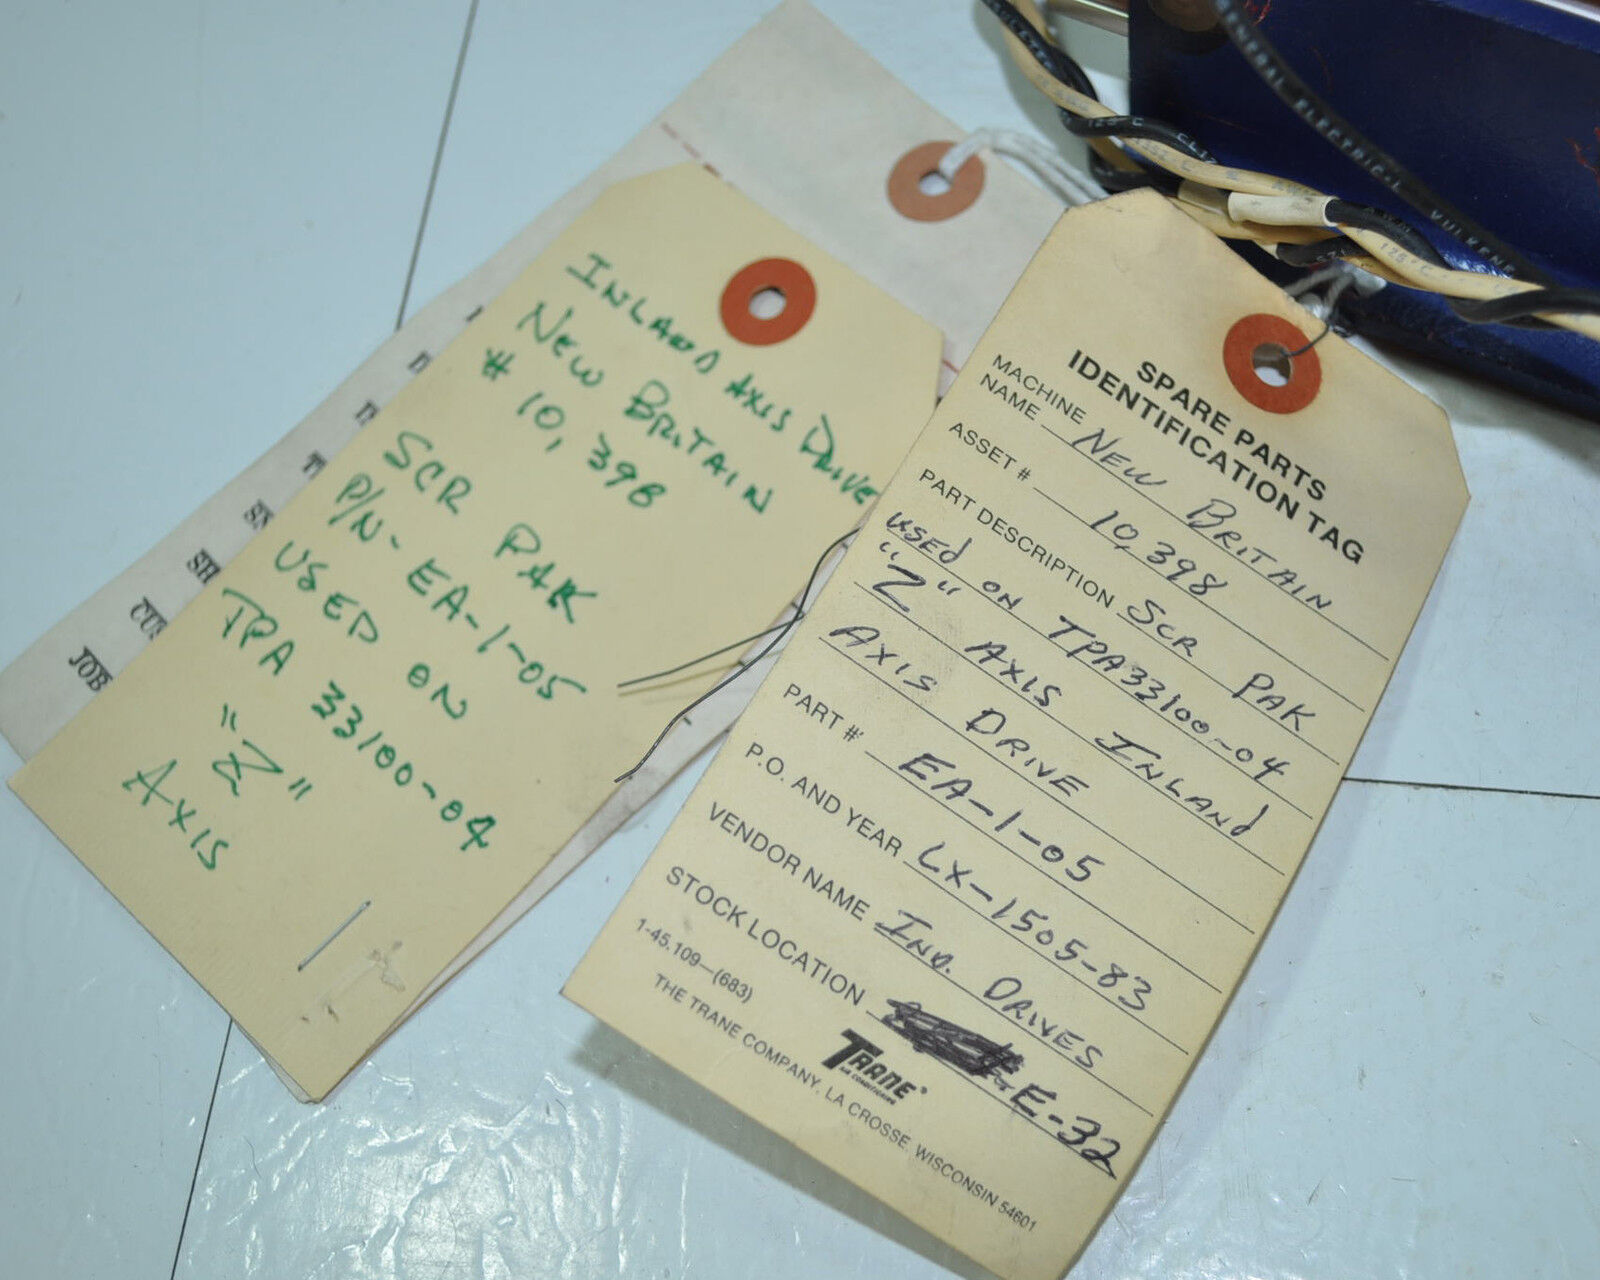 INLAND AXIS DRIVE
NEW BRITAIN
# 10,398
SCR PAK
P/N- EA-1-05
USED ON
TPA 33100-04
"Z"
AXIS
JOB
SPARE PARTS
IDENTIFICATION TAG
MACHINE
NAME NEW BRITAIN
ASSET # 10,398
PART DESCRIPTION SCR PAK
USED ON TPA33100-04
"Z" AXIS INLAND
AXIS DRIVE
PART # EA-1-05
P.O. AND YEAR LX-1505-83
VENDOR NAME IND. DRIVES
STOCK LOCATION E-32
1-45.109—(683)
TRANE®
AIR CONDITIONING
THE TRANE COMPANY, LA CROSSE, WISCONSIN 54601
GENERAL ELECTRIC
VULKENE
125°C